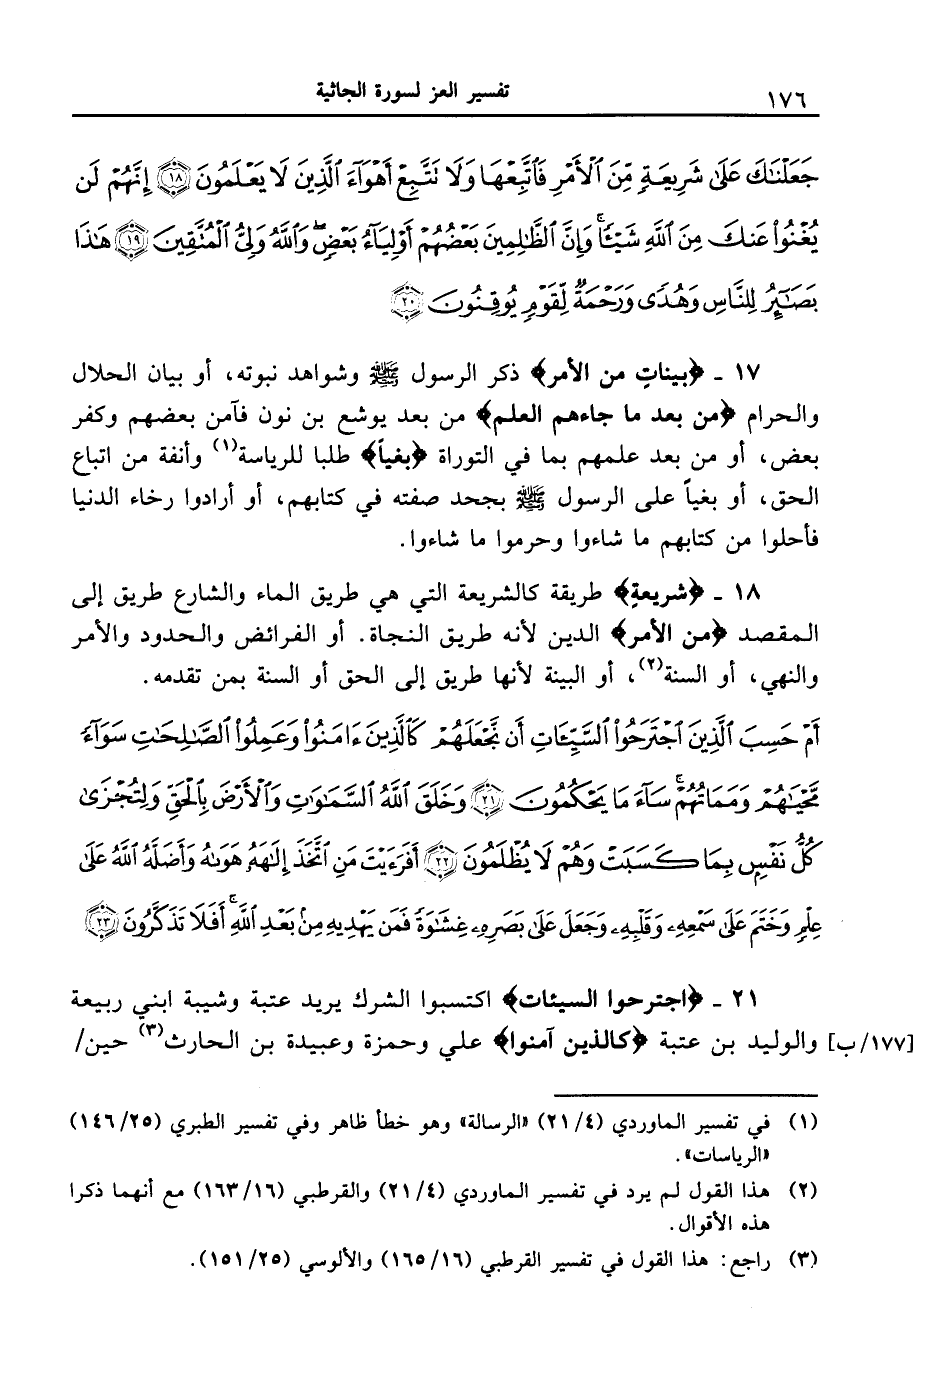 ١٧٦
تفسير العز لسورة الجاثية
جَعَلْنَٰكَ عَلَىٰ شَرِيعَةٍ مِّنَ ٱلْأَمْرِ فَٱتَّبِعْهَا وَلَا نَتَّبِعْ أَهْوَآءَ ٱلَّذِينَ لَا يَعْلَمُونَ ﴿١٨﴾ إِنَّهُمْ لَن
يُغْنُوا۟ عَنكَ مِنَ ٱللَّهِ شَيْـًٔا ۚ وَإِنَّ ٱلظَّٰلِمِينَ بَعْضُهُمْ أَوْلِيَآءُ بَعْضٍ ۖ وَٱللَّهُ وَلِىُّ ٱلْمُتَّقِينَ ﴿١٩﴾ هَٰذَا
بَصَٰٓئِرُ لِلنَّاسِ وَهُدًى وَرَحْمَةٌ لِّقَوْمٍ يُوقِنُونَ ﴿٢٠﴾
١٧ ـ ﴿بيناتٍ من الأمر﴾ ذكر الرسول ﷺ وشواهد نبوته، أو بيان الحلال
والحرام ﴿من بعد ما جاءهم العلم﴾ من بعد يوشع بن نون فآمن بعضهم وكفر
بعض، أو من بعد علمهم بما في التوراة ﴿بغياً﴾ طلبا للرياسة(١) وأنفة من اتباع
الحق، أو بغياً على الرسول ﷺ بجحد صفته في كتابهم، أو أرادوا رخاء الدنيا
فأحلوا من كتابهم ما شاءوا وحرموا ما شاءوا.
١٨ ـ ﴿شريعةٍ﴾ طريقة كالشريعة التي هي طريق الماء والشارع طريق إلى
المقصد ﴿من الأمر﴾ الدين لأنه طريق النجاة. أو الفرائض والحدود والأمر
والنهي، أو السنة(٢)، أو البينة لأنها طريق إلى الحق أو السنة بمن تقدمه.
أَمْ حَسِبَ ٱلَّذِينَ ٱجْتَرَحُوا۟ ٱلسَّيِّـَٔاتِ أَن نَّجْعَلَهُمْ كَٱلَّذِينَ ءَامَنُوا۟ وَعَمِلُوا۟ ٱلصَّٰلِحَٰتِ سَوَآءً
مَّحْيَاهُمْ وَمَمَاتُهُمْ ۚ سَآءَ مَا يَحْكُمُونَ ﴿٢١﴾ وَخَلَقَ ٱللَّهُ ٱلسَّمَٰوَٰتِ وَٱلْأَرْضَ بِٱلْحَقِّ وَلِتُجْزَىٰ
كُلُّ نَفْسٍۭ بِمَا كَسَبَتْ وَهُمْ لَا يُظْلَمُونَ ﴿٢٢﴾ أَفَرَءَيْتَ مَنِ ٱتَّخَذَ إِلَٰهَهُۥ هَوَىٰهُ وَأَضَلَّهُ ٱللَّهُ عَلَىٰ
عِلْمٍ وَخَتَمَ عَلَىٰ سَمْعِهِۦ وَقَلْبِهِۦ وَجَعَلَ عَلَىٰ بَصَرِهِۦ غِشَٰوَةً فَمَن يَهْدِيهِ مِنۢ بَعْدِ ٱللَّهِ ۚ أَفَلَا تَذَكَّرُونَ ﴿٢٣﴾
٢١ ـ ﴿اجترحوا السيئات﴾ اكتسبوا الشرك يريد عتبة وشيبة ابني ربيعة
[١٧٧/ب] والوليد بن عتبة ﴿كالذين آمنوا﴾ علي وحمزة وعبيدة بن الحارث(٣) حين/
(١) في تفسير الماوردي (٢١/٤) «الرسالة» وهو خطأ ظاهر وفي تفسير الطبري (١٤٦/٢٥)
«الرياسات».
(٢) هذا القول لم يرد في تفسير الماوردي (٢١/٤) والقرطبي (١٦٣/١٦) مع أنهما ذكرا
هذه الأقوال.
(٣) راجع: هذا القول في تفسير القرطبي (١٦٥/١٦) والألوسي (١٥١/٢٥).